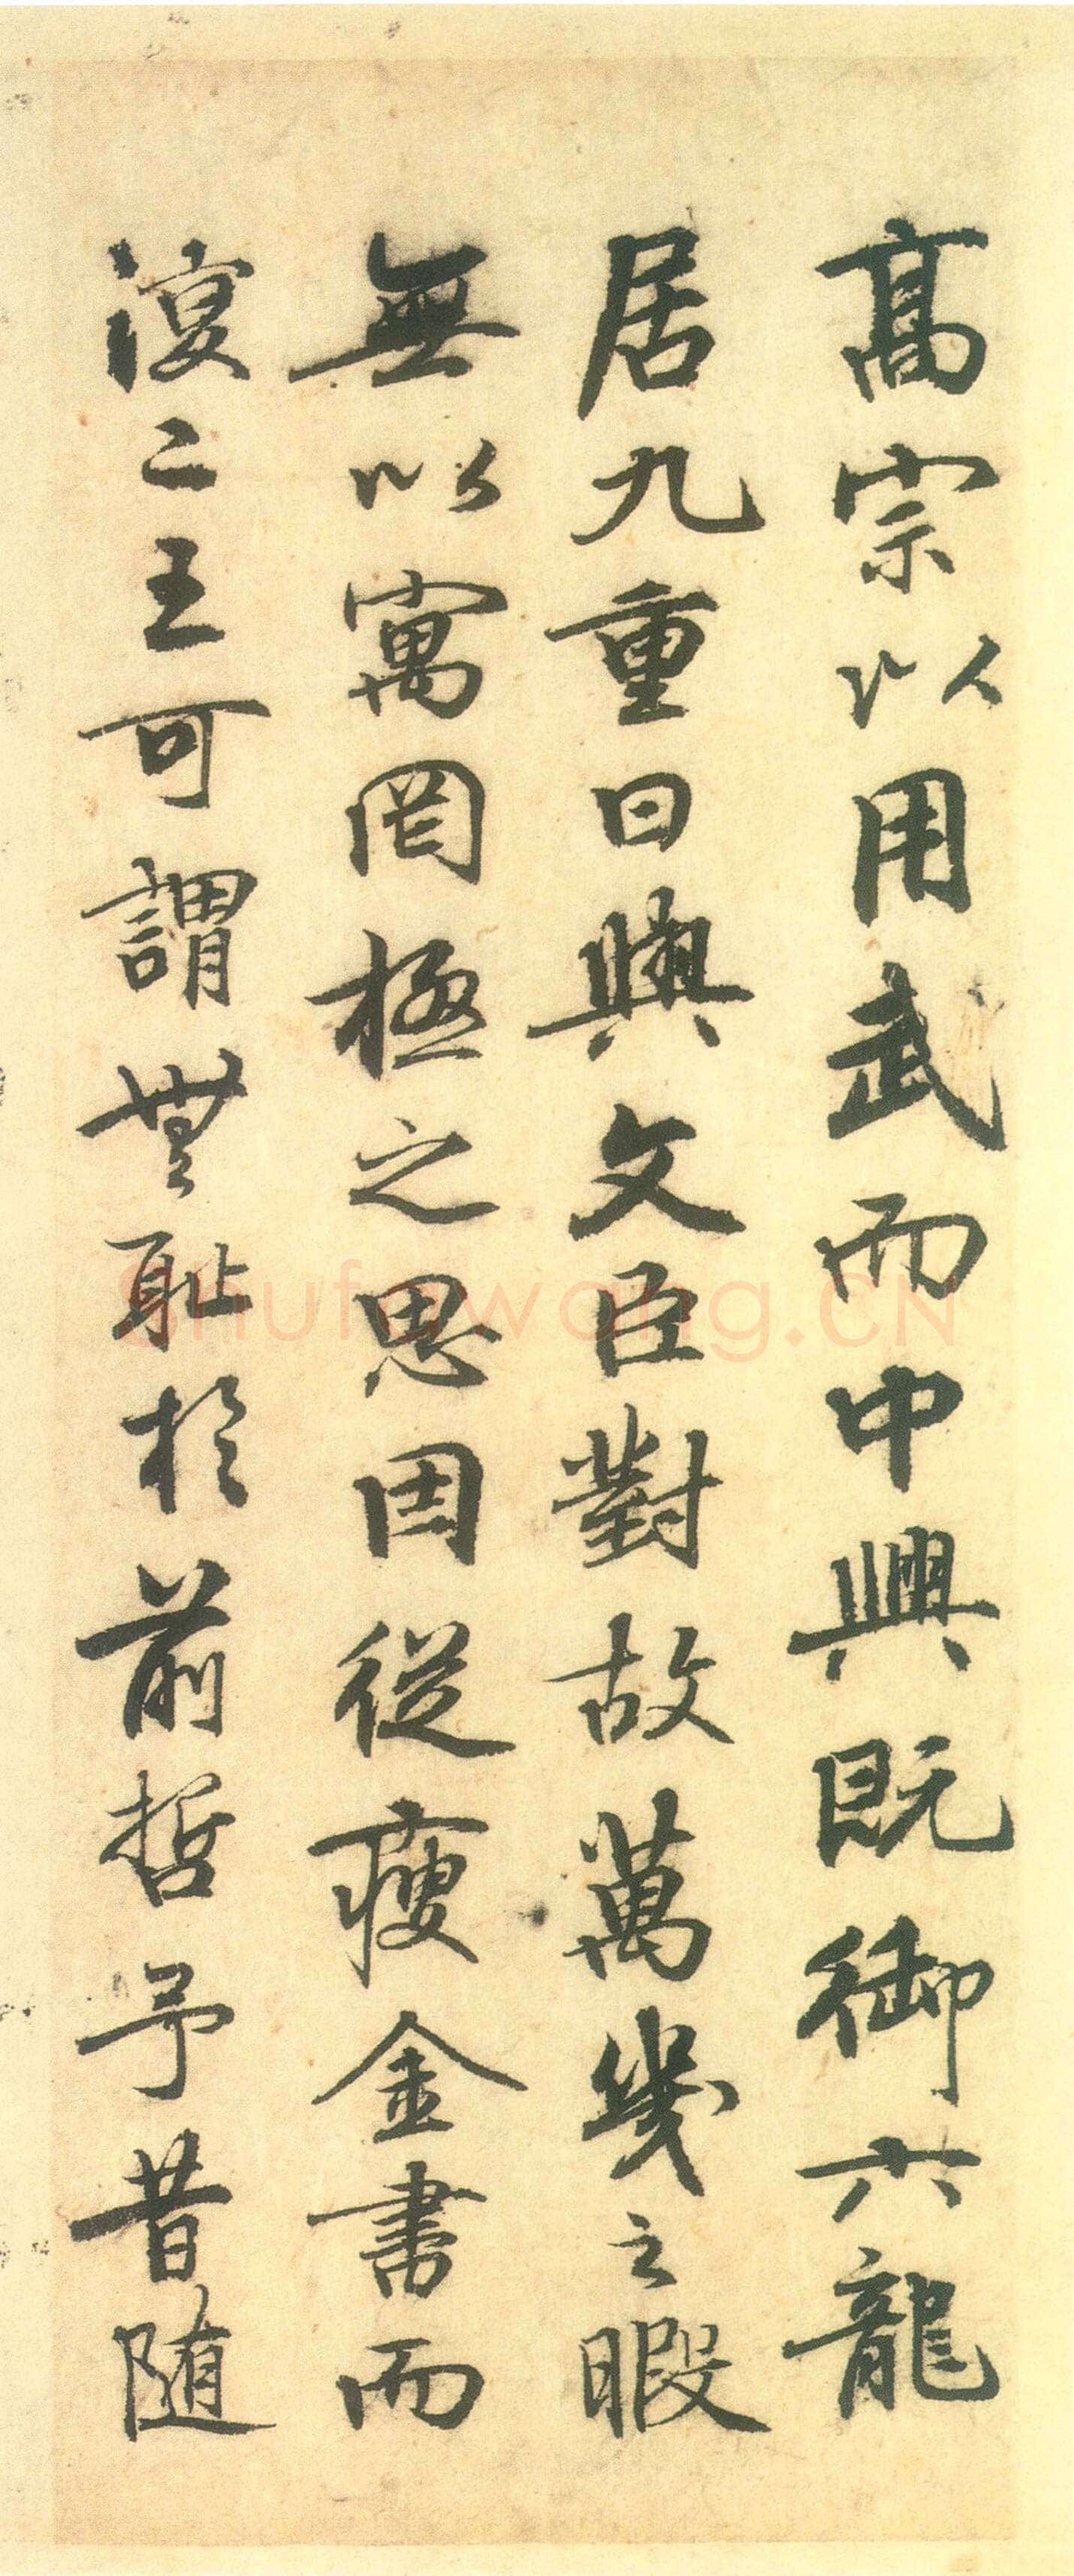 高宗以用武而中興既御六龍
居九重日與文臣對故萬幾之暇
無以寓罔極之思因從瘦金書而
復二王可謂無耻於前哲予昔隨
Shufawang.CN